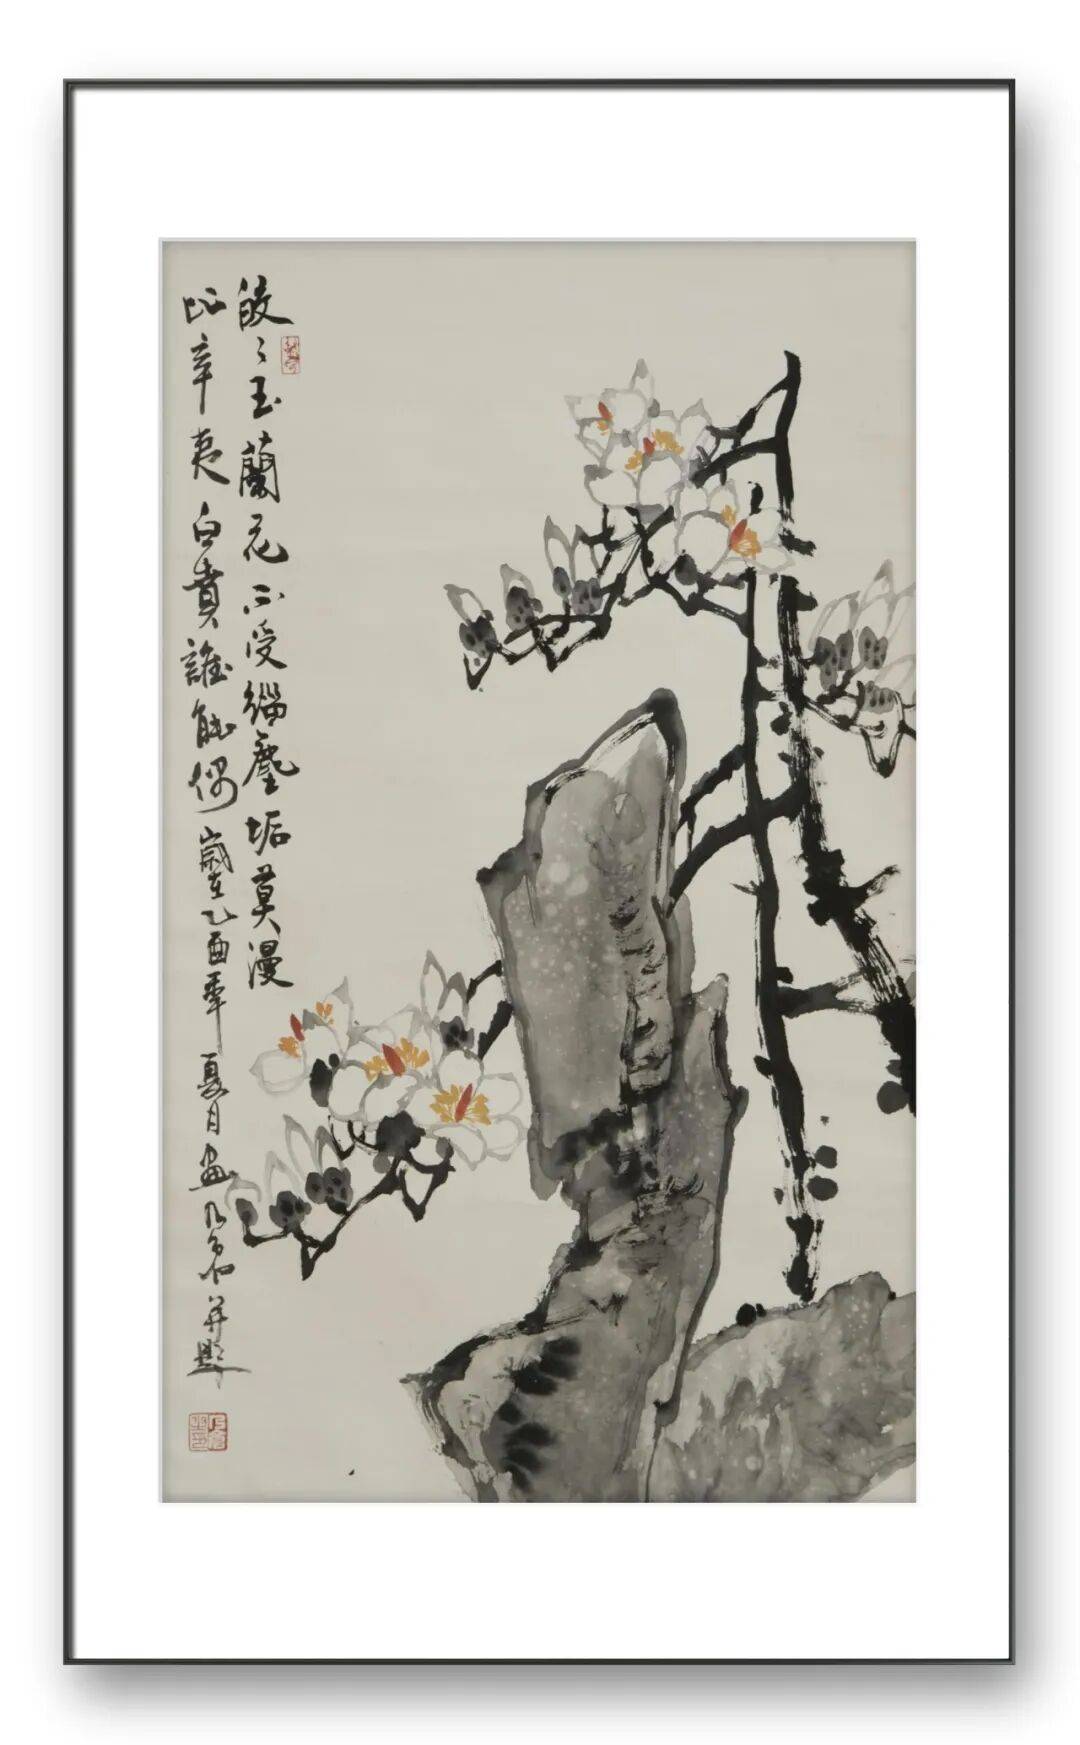 皎〻玉蘭花不受緇塵垢莫漫
比辛夷白賁誰能偶歲在乙酉年夏月画
并題